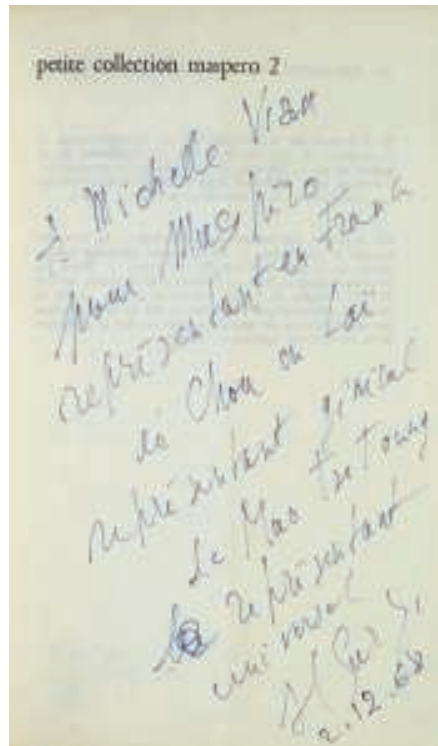 petite collection maspero 2
à Michelle Vian
pour Maspéro
représentant en France
de Chou en Laï
représentant général
de Mao Tse Toung
le représentant
universel
2.12.68